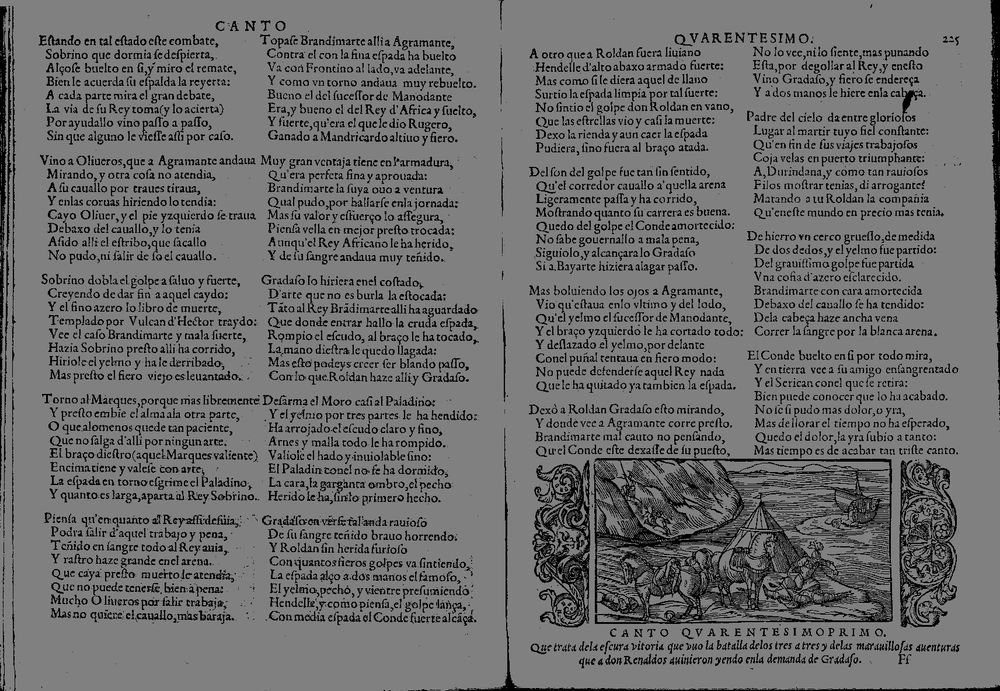 CANTO
Estando en tal estado este combate,
Sobrino que dormia se despierta,
Alçose buelto en si, y miro el remate,
Bien le acuerda su espalda la reyerta:
A cada parte mira el gran debate,
La via de su Rey toma (y lo acierta)
Por ayudallo vino passo a passo,
Sin que alguno le viesse assi por caso.
Vino a Oliueros, que a Agramante andaua
Mirando, y otra cosa no atendia,
A su cauallo por traues tiraua,
Y enlas coruas hiriendo lo tendia:
Cayo Oliuer, y el pie yzquierdo se traua
Debaxo del cauallo, y lo tenia
Asido alli el estribo, que sacallo
No pudo, ni salir de so el cauallo.
Sobrino dobla el golpe a saluo y fuerte,
Creyendo de dar fin a aquel caydo:
Y el fino azero lo libro de muerte,
Templado por Vulcan d'Hector traydo:
Vee el caso Brandimarte y mala suerte,
Hazia Sobrino presto alli ha corrido,
Hiriole el yelmo y ha le derribado,
Mas presto el fiero viejo es leuantado.
Torno al Marques, porque mas libremente
Y presto embie el alma ala otra parte,
O que alomenos quede tan paciente,
Que no salga d'alli por ningun arte.
El braço diestro (aquel Marques valiente)
Encima tiene y valese con arte,
La espada en torno esgrime el Paladino,
Y quanto es larga, aparta al Rey Sobrino.
Piensa qu'en quanto al Rey assi desuia,
Podra salir d'aquel trabajo y pena,
Teñido en sangre todo al Rey auia,
Y rastro haze grande enel arena.
Que caya presto muerto le atendia,
Que no puede tenerse, bien a pena:
Mucho Oliueros por salir trabaja,
Mas no quiere el cauallo, mas baraja.
Topase Brandimarte alli a Agramante,
Contra el con la fina espada ha buelto
Va con Frontino al lado, va adelante,
Y como vn torno andaua muy rebuelto.
Bueno el del sucessor de Manodante
Era, y bueno el del Rey d'Africa y suelto,
Y fuerte, qu'era el que le dio Rugero,
Ganado a Mandricardo altiuo y fiero.
Muy gran ventaja tiene en l'armadura,
Qu'era perfeta fina y aprouada:
Brandimarte la suya ouo a ventura
Qual pudo, por hallarse enla jornada:
Mas su valor y esfuerço lo assegura,
Piensa vella en mejor presto trocada:
Aunqu'el Rey Africano le ha herido,
Y de su sangre andaua muy teñido.
Gradaso lo hiriera enel costado,
D'arte que no es burla la estocada:
Tãto al Rey Brãdimarte alli ha aguardado
Que donde entrar hallo la cruda espada,
Rompio el escudo, al braço le ha tocado,
La mano diestra le quedo llagada:
Mas esto podeys creer ser blando passo,
Con lo que Roldan haze alli y Gradaso.
Desarma el Moro casi al Paladino:
Y el yelmo por tres partes le ha hendido:
Ha arrojado el escudo claro y fino,
Arnes y malla todo le ha rompido.
Valiole el hado y inuiolable sino:
El Paladin conel no se ha dormido,
La cara, la garganta ombro, el pecho
Herido le ha, sin lo primero hecho.
Gradaso en verse tal anda rauioso
De su sangre teñido brauo horrendo:
Y Roldan sin herida furioso
Con quantos fieros golpes va sintiendo,
La espada alço a dos manos el famoso,
El yelmo, pechó, y vientre presumiendo
Hendelle, y como piensa, el golpe lãça,
Con media espada el Conde fuerte alcãça.
QVARENTESIMO. 225
A otro que a Roldan fuera liuiano
Hendelle d'alto abaxo armado fuerte:
Mas como si le diera aquel de llano
Surtio la espada limpia por tal suerte:
No sintio el golpe don Roldan en vano,
Que las estrellas vio y casi la muerte:
Dexo la rienda y aun caer la espada
Pudiera, sino fuera al braço atada.
Del son del golpe fue tan sin sentido,
Qu'el corredor cauallo a'quella arena
Ligeramente passa y ha corrido,
Mostrando quanto su carrera es buena.
Quedo del golpe el Conde amortecido:
No sabe gouernallo a mala pena,
Siguiolo, y alcançara lo Gradaso
Si a Bayarte hiziera alagar passo.
Mas boluiendo los ojos a Agramante,
Vio qu'estaua enlo vltimo y del lodo,
Qu'el yelmo el sucessor de Manodante,
Y el braço yzquierdo le ha cortado todo:
Y deslazado el yelmo, por delante
Conel puñal tentaua en fiero modo:
No puede defenderse aquel Rey nada
Que le ha quitado ya tambien la espada.
Dexò a Roldan Gradaso esto mirando,
Y donde vee a Agramante corre presto.
Brandimarte mal cauto no pensando,
Qu'el Conde este dexasse de su puesto,
No lo vee, ni lo siente, mas punando
Esta, por degollar al Rey, y enesto
Vino Gradaso, y fiero se endereça
Y a dos manos le hiere enla cabeça.
Padre del cielo da entre gloriosos
Lugar al martir tuyo fiel constante:
Qu'en fin de sus viajes trabajosos
Coja velas en puerto triumphante:
A, Durindana, y como tan rauiosos
Filos mostrar tenias, di arrogante?
Matando a tu Roldan la compañia
Qu'eneste mundo en precio mas tenia.
De hierro vn cerco gruesso, de medida
De dos dedos, y el yelmo fue partido:
Del grauissimo golpe fue partida
Vna cofia d'azero esclarecido.
Brandimarte con cara amortecida
Debaxo del cauallo se ha tendido:
Dela cabeça haze ancha vena
Correr la sangre por la blanca arena.
El Conde buelto en si por todo mira,
Y en tierra vee a su amigo ensangrentado
Y el Serican conel que se retira:
Bien puede conocer que lo ha acabado.
No sè si pudo mas dolor, o yra,
Mas de llorar el tiempo no ha esperado,
Quedo el dolor, la yra subio a tanto:
Mas tiempo es de acabar tan triste canto.
CANTO QVARENTESIMOPRIMO.
Que trata dela escura vitoria que vuo la batalla delos tres a tres y delas marauillosas auenturas
que a don Renaldos auinieron yendo enla demanda de Gradaso. Ff